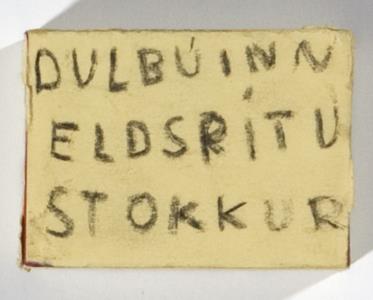 DULBÚINN
ELDSPÍTU
STOKKUR